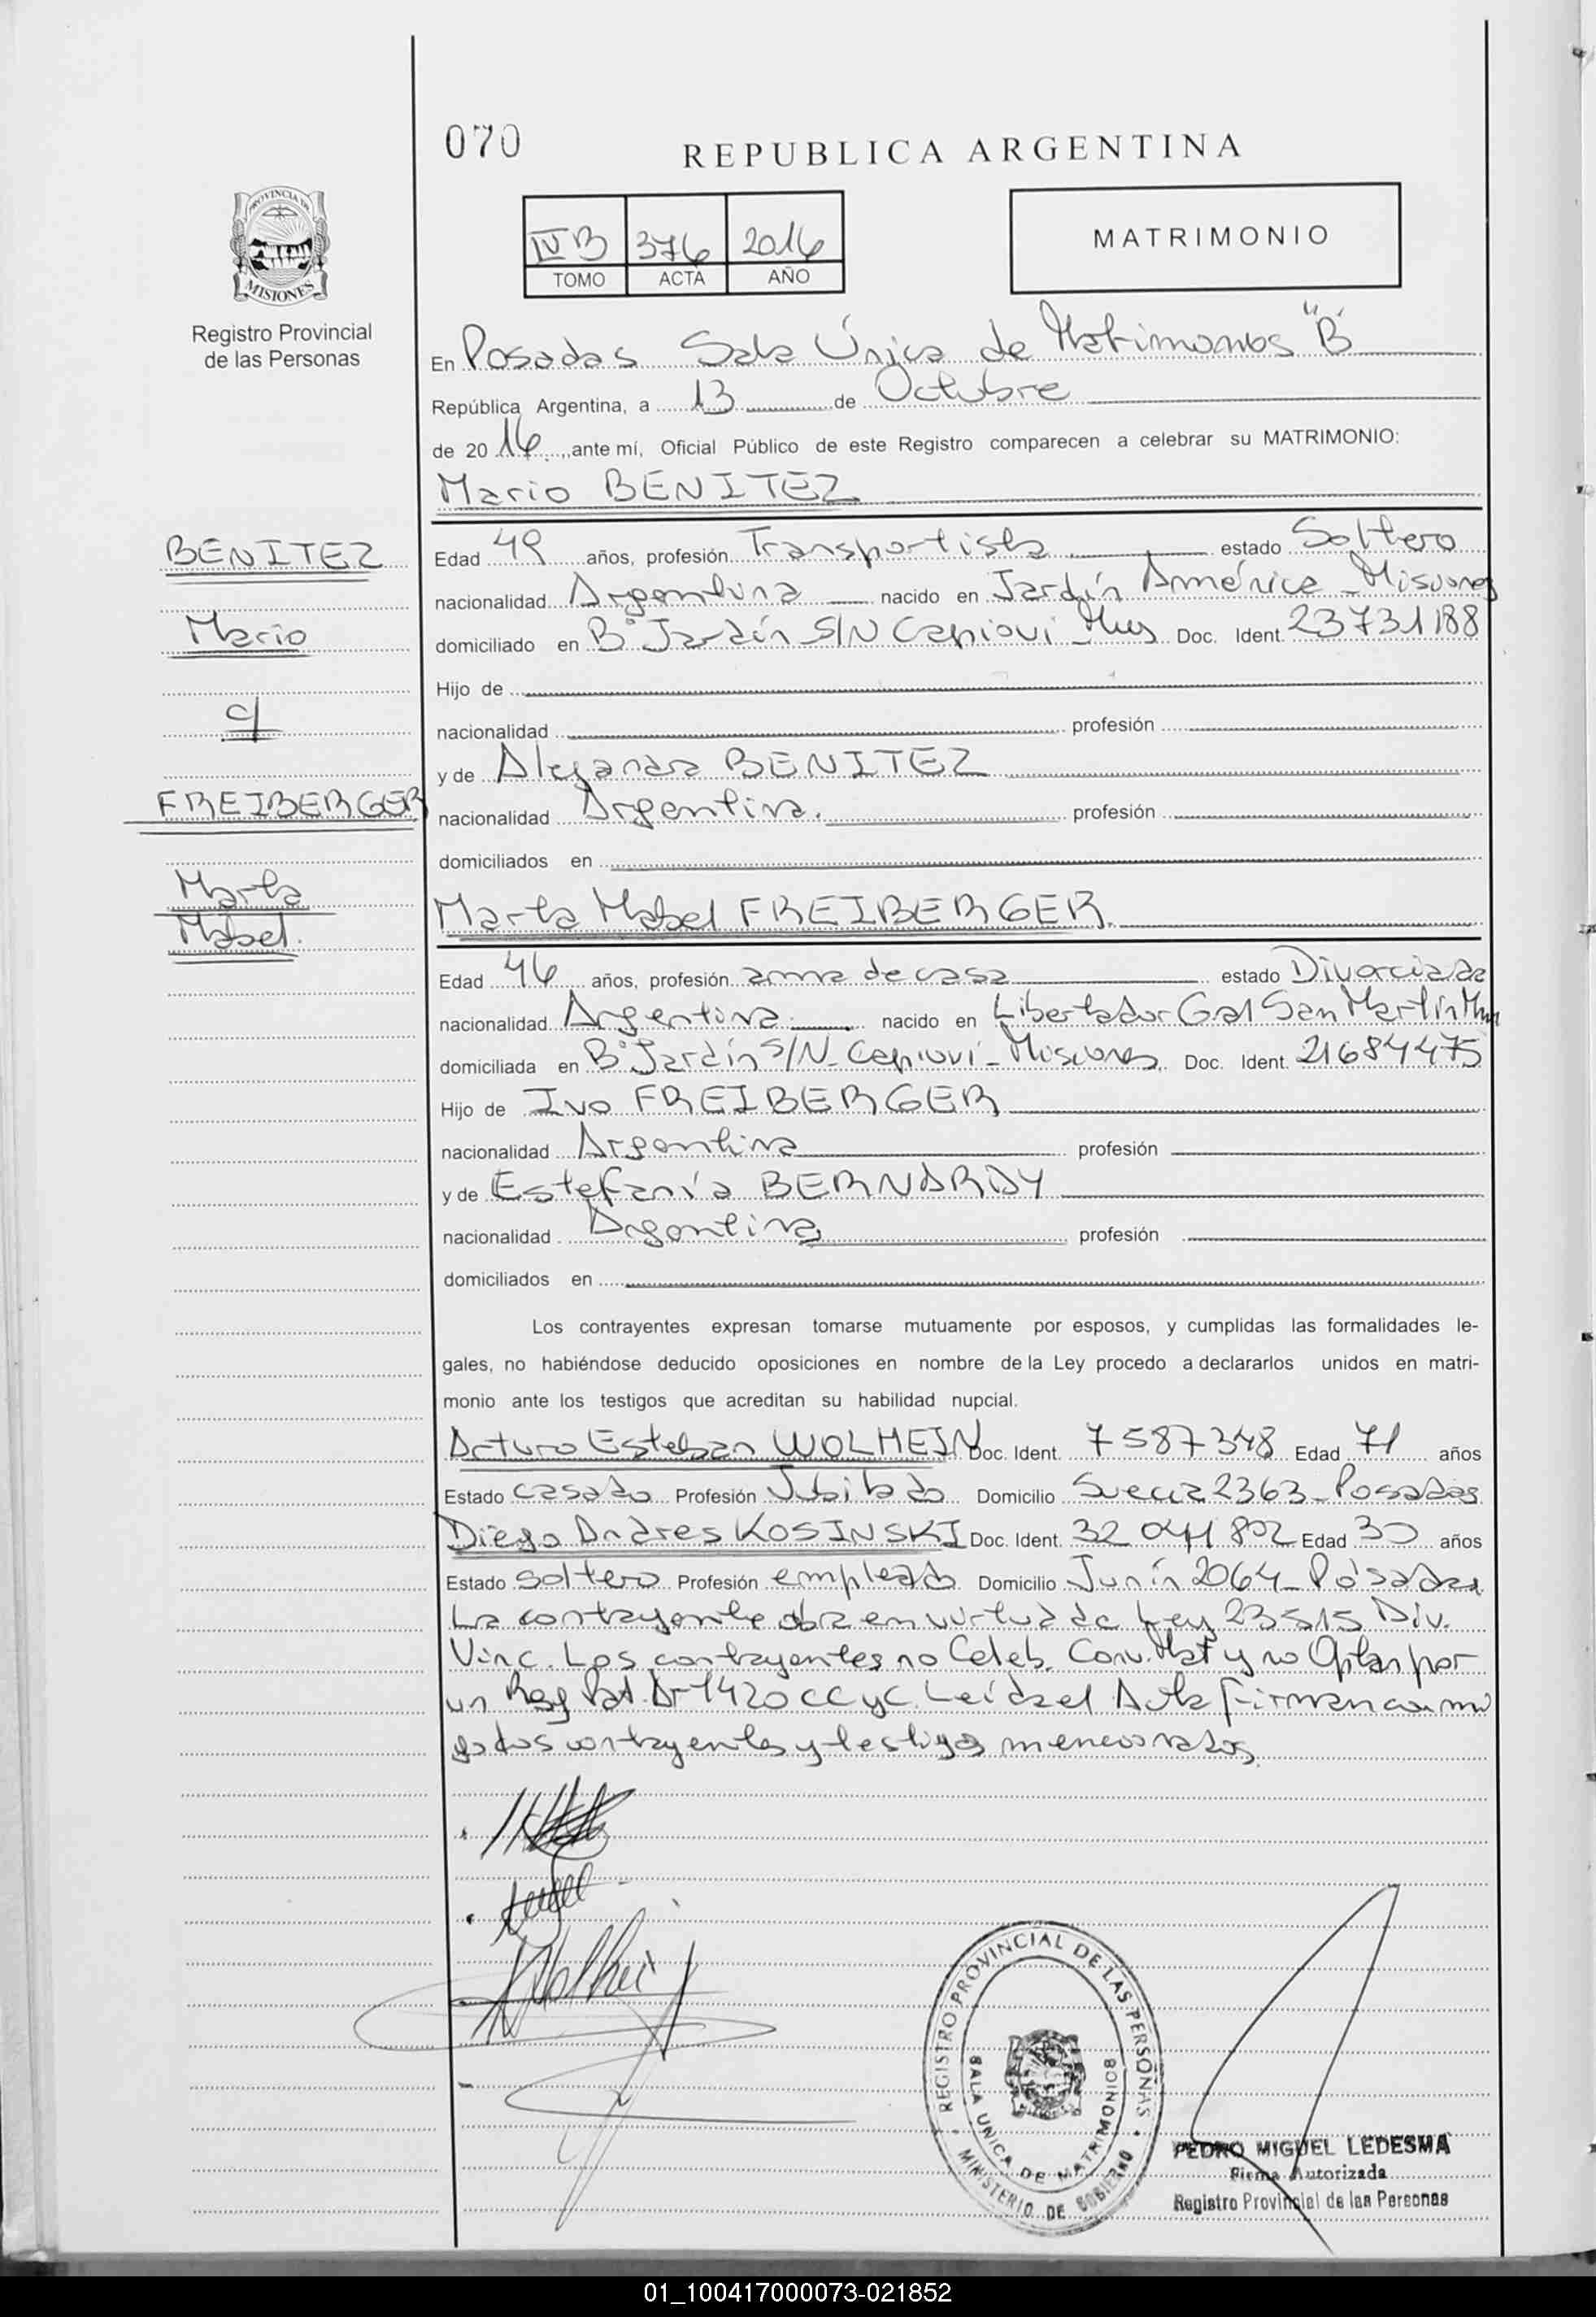 070
REPUBLICA ARGENTINA
PROVINCIA DE
MISIONES
Registro Provincial
de las Personas
IV B 376 2016
TOMO ACTA AÑO
MATRIMONIO
En Posadas Sala Única de Matimonios "B"
República Argentina, a 13 de Octubre
de 2016, ante mí, Oficial Público de este Registro comparecen a celebrar su MATRIMONIO:
Mario BENITEZ
BENITEZ
Mario
c/
FREIBERGER
Marta
Mabel.
Edad 49 años, profesión Transportista estado Soltero
nacionalidad Argentina nacido en Jardín América - Misiones
domiciliado en B° Jardín S/N Capioví - Mnes Doc. Ident. 23731188
Hijo de
nacionalidad profesión
y de Alejandra BENITEZ
nacionalidad Argentina. profesión
domiciliados en
Marta Mabel FREIBERGER.
Edad 46 años, profesión ama de casa estado Divorciada
nacionalidad Argentina nacido en Libertador Gral San Martín
domiciliada en B° Jardín S/N - Capioví - Misiones. Doc. Ident. 21684475
Hijo de Ivo FREIBERGER
nacionalidad Argentina profesión
y de Estefanía BERNARDY
nacionalidad Argentina profesión
domiciliados en
Los contrayentes expresan tomarse mutuamente por esposos, y cumplidas las formalidades le-
gales, no habiéndose deducido oposiciones en nombre de la Ley procedo a declararlos unidos en matri-
monio ante los testigos que acreditan su habilidad nupcial.
Arturo Esteban WOLHEIN Doc. Ident. 7587348 Edad 71 años
Estado casado Profesión Jubilado Domicilio Suecia 2363 - Posadas
Diego Andres KOSINSKI Doc. Ident. 32 041 802 Edad 30 años
Estado soltero Profesión empleado Domicilio Junín 2064 - Posadas
La contrayente obra en virtud de Ley 23515 Div.
Vinc. Los contrayentes no Celeb. Conv. Mat y no Optan por
un Reg Pat. Art 420 CC y C. Leída el Acta firman con mi
go los contrayentes y testigos mencionados.
REGISTRO PROVINCIAL DE LAS PERSONAS
SALA UNICA DE MATRIMONIOS
MINISTERIO DE GOBIERNO
PEDRO MIGUEL LEDESMA
Firma Autorizada
Registro Provincial de las Personas
01_100417000073-021852